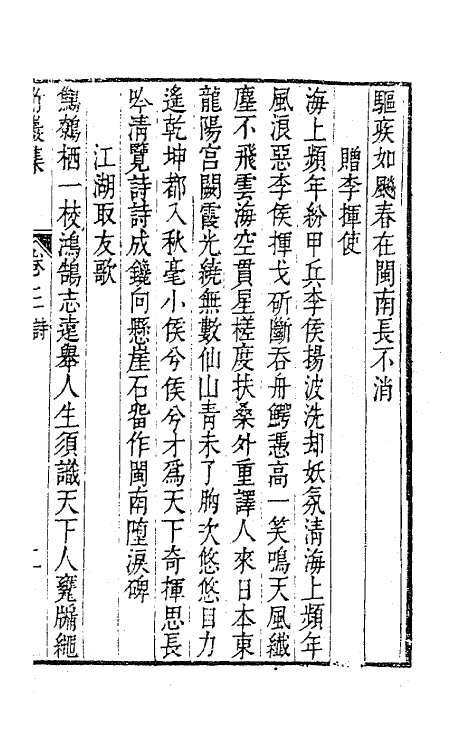 驅疾如飈春在閩南長不消
贈李揮使
海上頻年紛甲兵李侯揚波洗却妖氛清海上頻年
風浪惡李侯揮戈斫斷吞舟鰐憑高一笑鳴天風纖
塵不飛雲海空貫星槎度扶桑外重譯人來日本東
龍陽宮闕霞光繞無數仙山青未了胸次悠悠目力
遙乾坤都入秋毫小侯兮侯兮才爲天下奇揮思長
吟清覽詩詩成鐫向懸崖石畱作閩南墮淚碑
江湖取友歌
鷦鷯栖一枝鴻鵠志遠舉人生須識天下人甕牖繩
集 卷二 詩 二